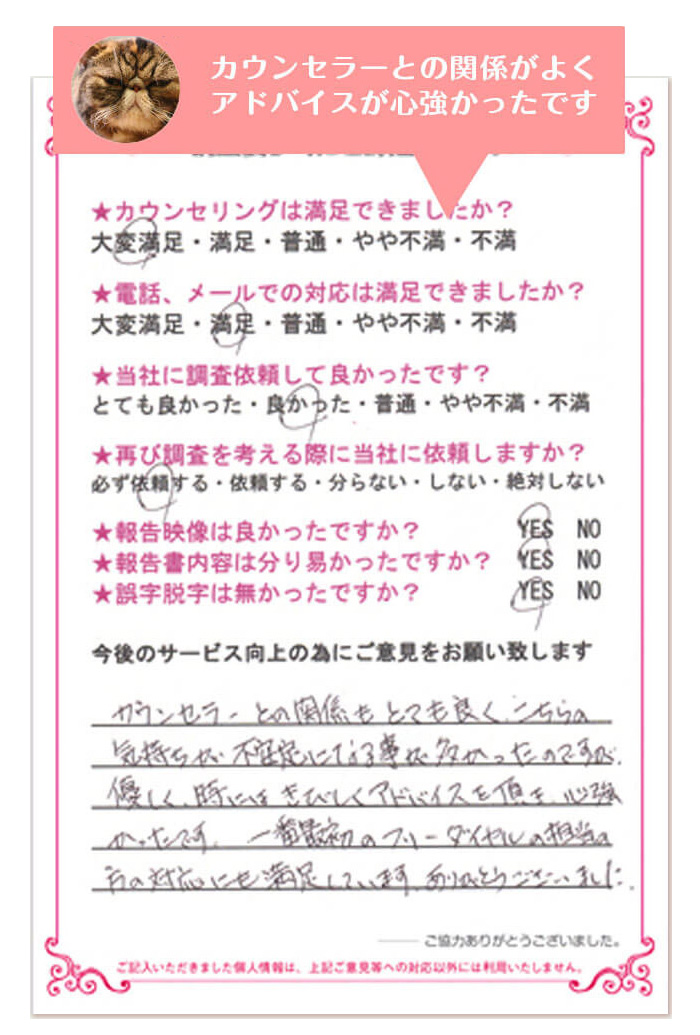 カウンセラーとの関係がよく
アドバイスが心強かったです
★カウンセリングは満足できましたか？
大変満足・満足・普通・やや不満・不満
★電話、メールでの対応は満足できましたか？
大変満足・満足・普通・やや不満・不満
★当社に調査依頼して良かったです？
とても良かった・良かった・普通・やや不満・不満
★再び調査を考える際に当社に依頼しますか？
必ず依頼する・依頼する・分らない・しない・絶対しない
★報告映像は良かったですか？ YES NO
★報告書内容は分り易かったですか？ YES NO
★誤字脱字は無かったですか？ YES NO
今後のサービス向上の為にご意見をお願い致します
カウンセラーとの関係もとても良く、こちらの
気持ちが不安定になる事が多かったのですが、
優しく、時にはきびしくアドバイスを頂き、心強
かったです。一番最初のフリーダイヤルの担当の
方の対応にも満足しています。ありがとうございました。
――― ご協力ありがとうございました。
ご記入いただきました個人情報は、上記ご意見等への対応以外には利用いたしません。